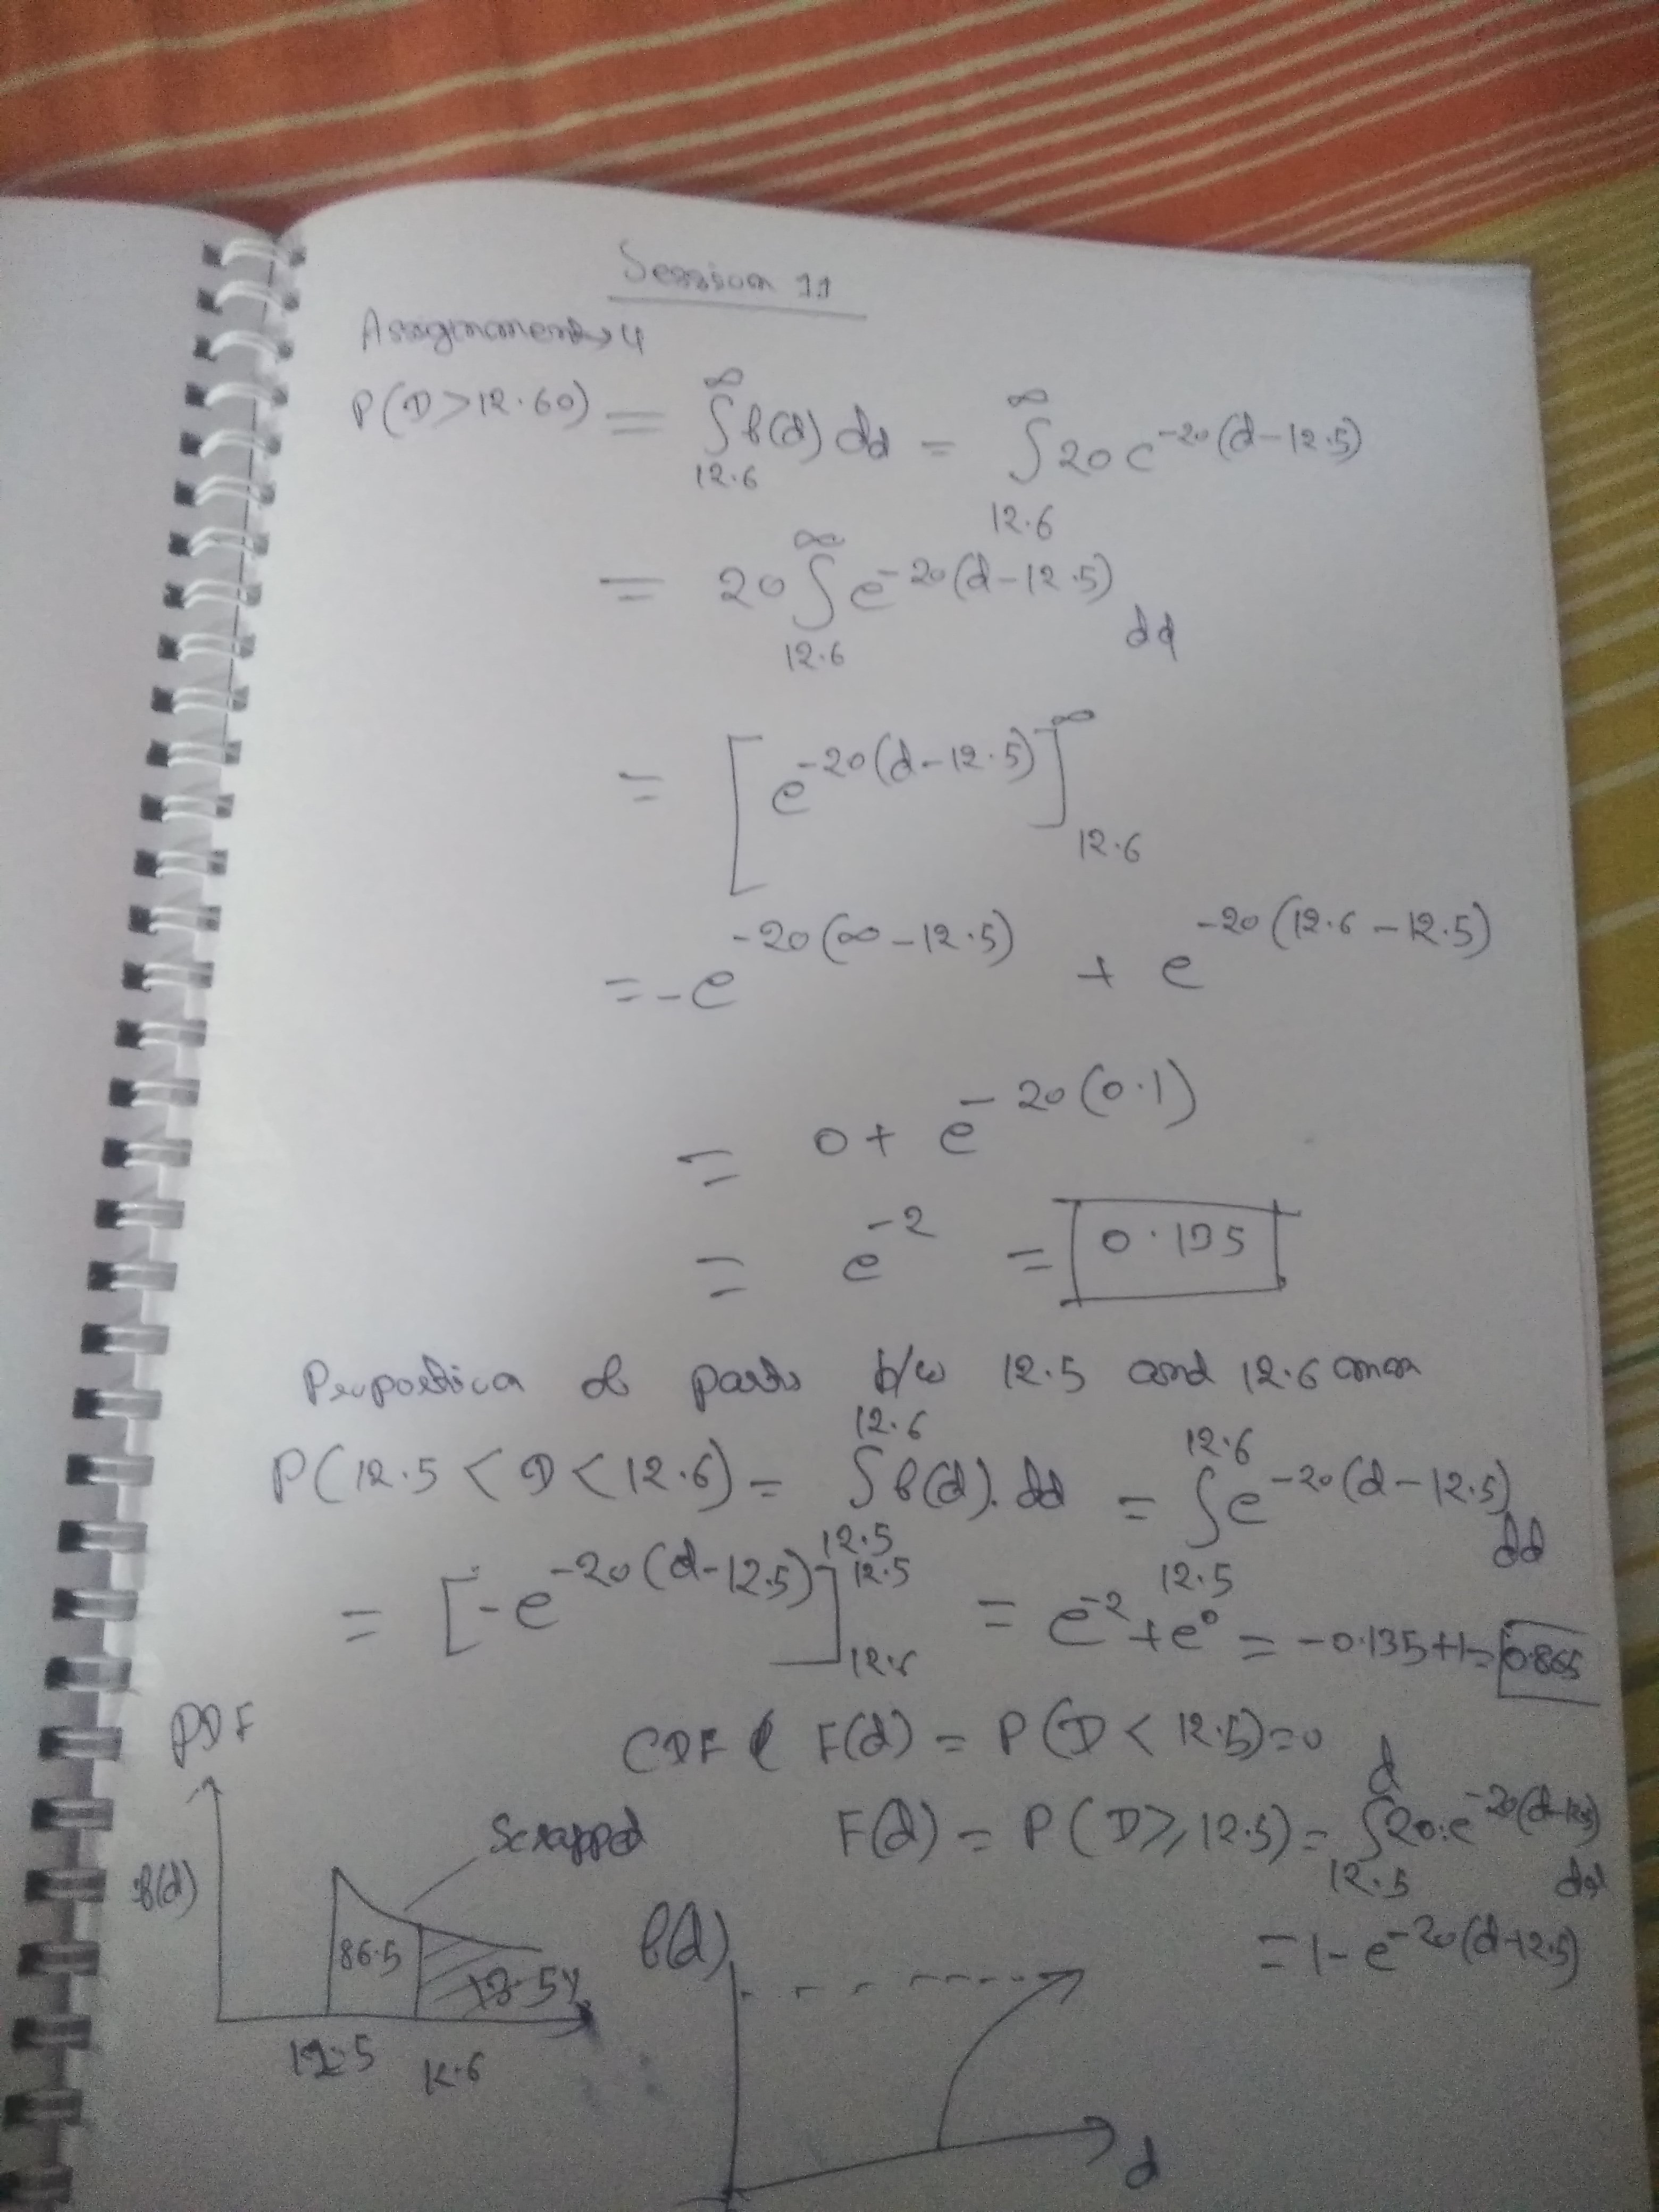 Session 11
Assignment 4
P(D>12.60) = ∫_{12.6}^{∞} f(d) dd = ∫_{12.6}^{∞} 20 e^{-20(d-12.5)}
= 20 ∫_{12.6}^{∞} e^{-20(d-12.5)} dd
= [e^{-20(d-12.5)}]_{12.6}^{∞}
= -e^{-20(∞-12.5)} + e^{-20(12.6-12.5)}
= 0 + e^{-20(0.1)}
= e^{-2} = 0.135
Proportion of parts b/w 12.5 and 12.6 mm
P(12.5 < D < 12.6) = ∫_{12.5}^{12.6} f(d). dd = ∫_{12.5}^{12.6} e^{-20(d-12.5)} dd
= [-e^{-20(d-12.5)}]_{12.6}^{12.5} = e^{-2} + e^{0} = -0.135+1= 0.865
PDF
CDF F(d) = P(D < 12.5)=0
F(d) = P(D ≥ 12.5) = ∫_{12.5}^{d} 20.e^{-20(d-12.5)} dd
= 1- e^{-20(d-12.5)}
Scrapped
f(d)
86.5
13.5%
12.5
12.6
f(d)
d